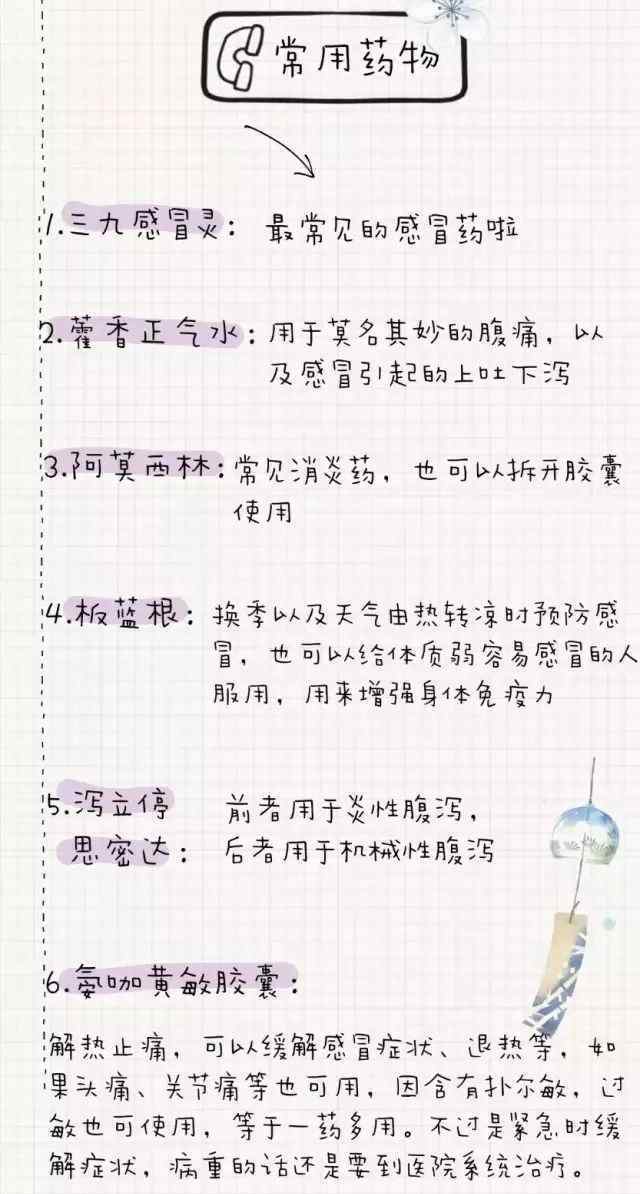 常用药物
1.三九感冒灵：最常见的感冒药啦
2.藿香正气水：用于莫名其妙的腹痛，以
及感冒引起的上吐下泻
3.阿莫西林：常见消炎药，也可以拆开胶囊
使用
4.板蓝根：换季以及天气由热转凉时预防感
冒，也可以给体质弱容易感冒的人
服用，用来增强身体免疫力
5.泻立停 前者用于炎性腹泻，
思密达：后者用于机械性腹泻
6.氨咖黄敏胶囊：
解热止痛，可以缓解感冒症状、退热等，如
果头痛、关节痛等也可用，因含有扑尔敏，过
敏也可使用，等于一药多用。不过是紧急时缓
解症状，病重的话还是要到医院系统治疗。